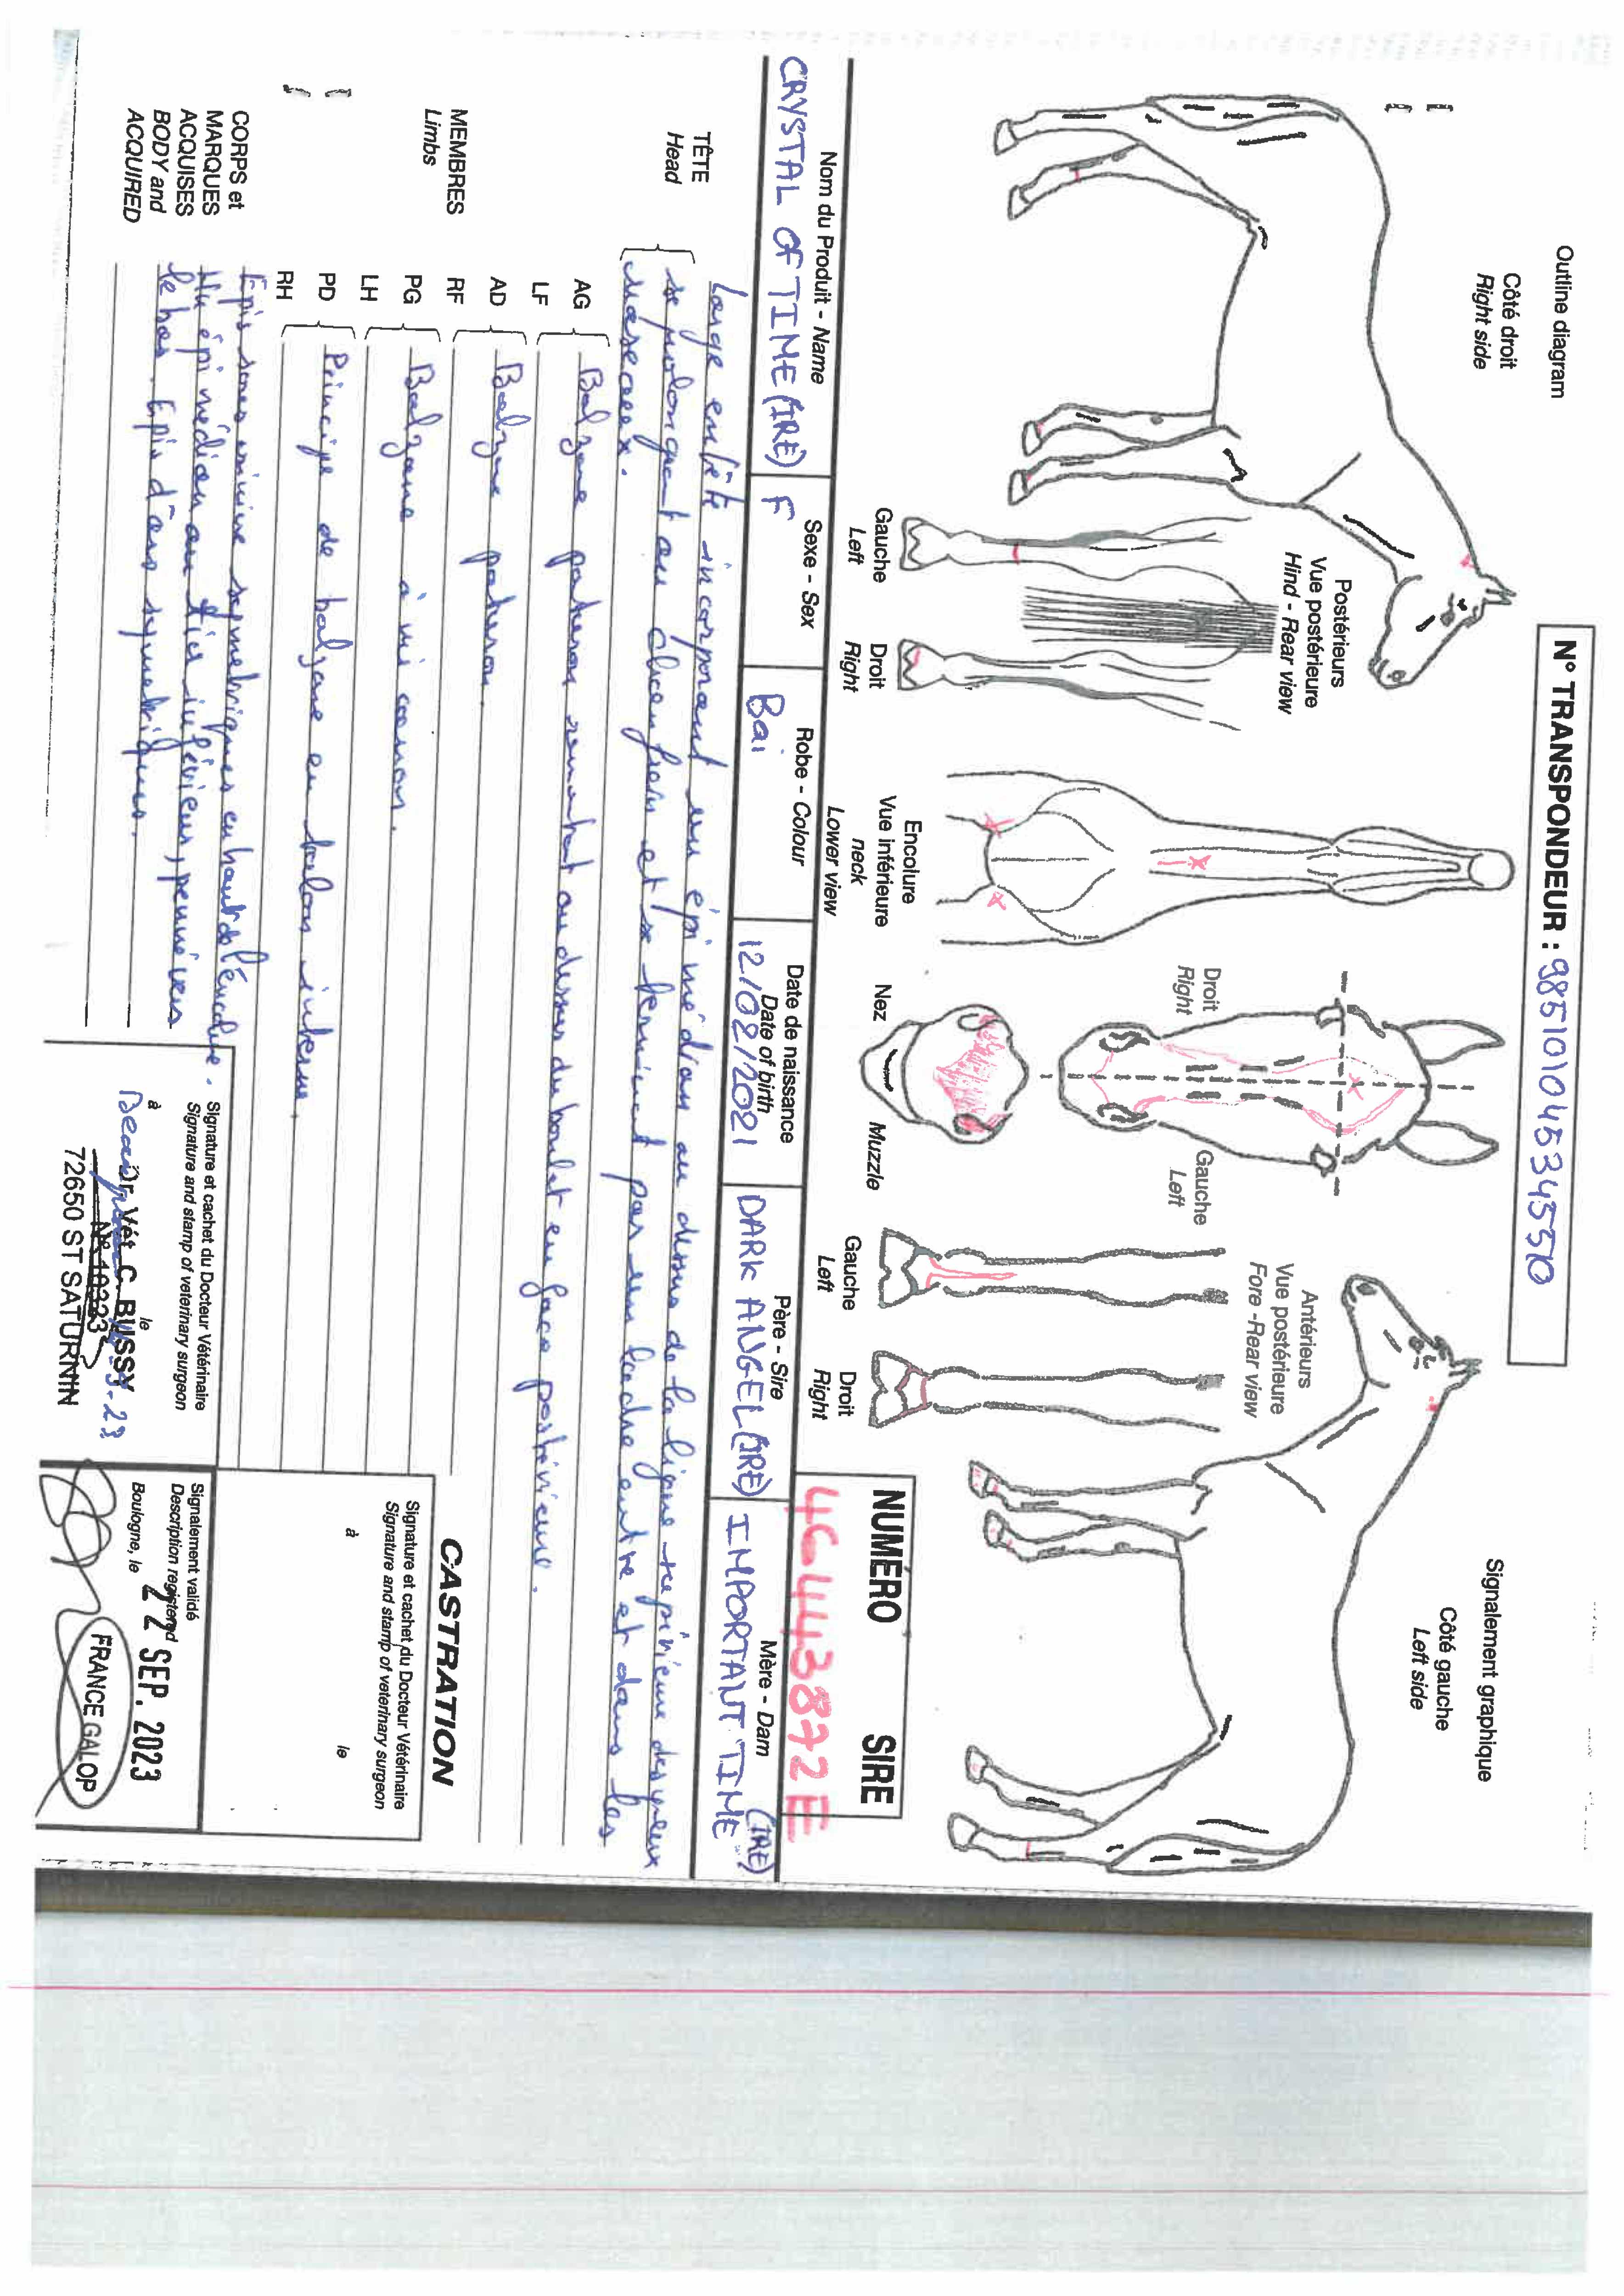 Outline diagram
Côté droit
Right side
N° TRANSPONDEUR : 985101045345570
Signalement graphique
Côté gauche
Left side
Postérieurs
Vue postérieure
Hind - Rear view
Gauche
Left
Droit
Right
Encolure
Vue inférieure
neck
Lower view
Droit
Right
Gauche
Left
Nez
Muzzle
Antérieurs
Vue postérieure
Fore - Rear view
Gauche
Left
Droit
Right
NUMÉRO SIRE
Nom du Produit - Name
Sexe - Sex
Robe - Colour
Date de naissance
Date of birth
Père - Sire
Mère - Dam
CRYSTAL OF TIME (IRE)
F
Bai
12/02/2021
DARK ANGEL (IRE)
IMPORTANT TIME (IRE)
TÊTE
Head
Large en tête incorporant un épi médian au dessus de la ligne supérieure des yeux
se prolongeant au chanfrein et se terminant par un ladre entre et dans les
naseaux.
MEMBRES
Limbs
AG
LF
Balzane paturon remontant au dessus du boulet en face postérieure.
AD
RF
Balzane paturon.
PG
LH
Balzane à mi canon.
PD
RH
Principe de balzane en talon interne.
CORPS et
MARQUES
ACQUISES
BODY and
ACQUIRED
Epis sous crinière symétriques en haut de l'encolure.
Un épi médian au tiers inférieur, penné vers
le bas. Epis d'ars symétriques.
CASTRATION
Signature et cachet du Docteur Vétérinaire
Signature and stamp of veterinary surgeon
à
le
Signature et cachet du Docteur Vétérinaire
Signature and stamp of veterinary surgeon
à
le
Dr Vét C. BUSSY
N° 10323
72650 ST SATURNIN
Signalement validé
Description registered
Boulogne, le
22 SEP. 2023
FRANCE GALOP